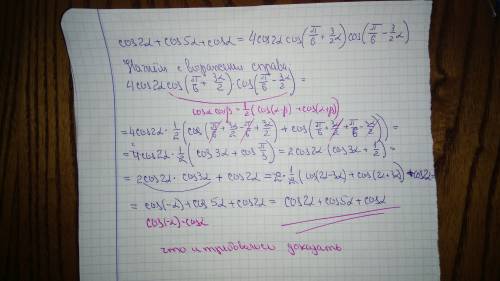 cos2α + cos5α + cosα = 4cos2α cos(π/6 + 3/2 α) cos(π/6 - 3/2 α)
Начнём с выражения справа:
4cos2α cos(π/6 + 3α/2) · cos(π/6 - 3α/2) =
cosα cosβ = 1/2 (cos(α-β) + cos(α+β))
= 4cos2α · 1/2 (cos(π/6 + 3α/2 - π/6 + 3α/2) + cos(π/6 + 3α/2 + π/6 - 3α/2)) =
= 4cos2α · 1/2 (cos3α + cos π/3) = 2cos2α (cos3α + 1/2) =
= 2cos2α · cos3α + cos2α = 2 · 1/2 (cos(2α-3α) + cos(2α+3α)) + cos2α =
= cos(-α) + cos5α + cos2α = cos2α + cos5α + cosα
cos(-α) = cosα
что и требовалось доказать